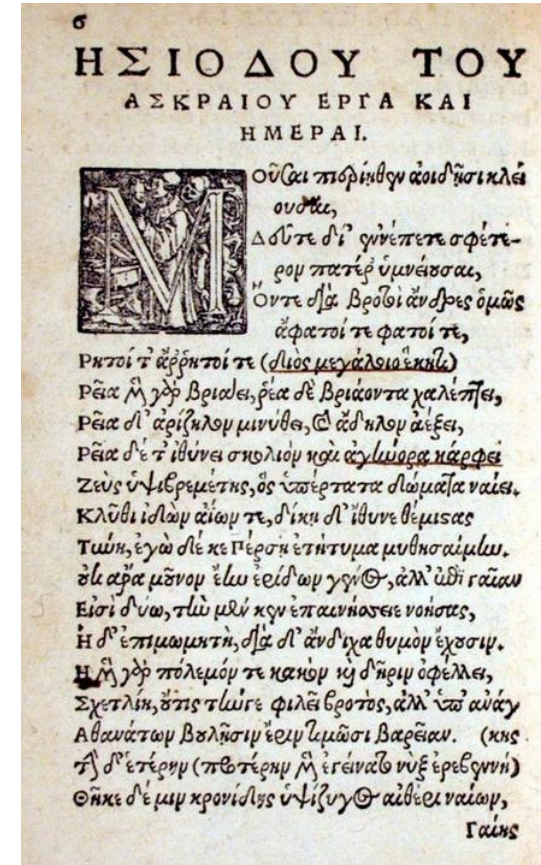 6
ΗΣΙΟΔΟΥ ΤΟΥ
ΑΣΚΡΑΙΟΥ ΕΡΓΑ ΚΑΙ
ΗΜΕΡΑΙ.
Μοῦσαι πιερίηθεν ἀοιδῇσι κλεί
ουσαι,
Δεῦτε δί' ἐννέπετε σφέτε-
ρον πατέρ' ὑμνείουσαι,
Ὅντε διὰ βροτοὶ ἄνδρες ὁμῶς
ἄφατοί τε φατοί τε,
Ρητοί τ' ἄρρητοί τε (διὸς μεγάλοιο ἕκητι)
Ρεῖα μὲν γὰρ βριάει, ῥέα δὲ βριάοντα χαλέπτει,
Ρεῖα δ' ἀρίζηλον μινύθει, καὶ ἄδηλον ἀέξει,
Ρεῖα δέ τ' ἰθύνει σκολιὸν καὶ ἀγήνορα κάρφει
Ζεὺς ὑψιβρεμέτης, ὃς ὑπέρτατα δώματα ναίει.
Κλῦθι ἰδὼν ἀΐων τε, δίκη δ' ἴθυνε θέμιστας
Τύνη, ἐγὼ δέ κε Πέρσῃ ἐτήτυμα μυθησαίμην.
οὐκ ἄρα μοῦνον ἔην ἐρίδων γένος, ἀλλ' ἐπὶ γαῖαν
Εἰσὶ δύω, τὴν μέν κεν ἐπαινήσειε νοήσας,
Η δ' ἐπιμωμητὴ, διὰ δ' ἄνδιχα θυμὸν ἔχουσιν.
Η μὲν γὰρ πόλεμόν τε κακὸν καὶ δῆριν ὀφέλλει,
Σχετλίη, οὔτις τήνγε φιλεῖ βροτὸς, ἀλλ' ὑπ' ἀνάγ
Αθανάτων βουλῇσιν ἔριν τιμῶσι βαρεῖαν. (κης
τὴν δ' ἑτέρην (προτέρην μὲν ἐγείνατο νὺξ ἐρεβεννή)
Θῆκε δέ μιν κρονίδης ὑψίζυγος αἰθέρι ναίων,
Γαίης